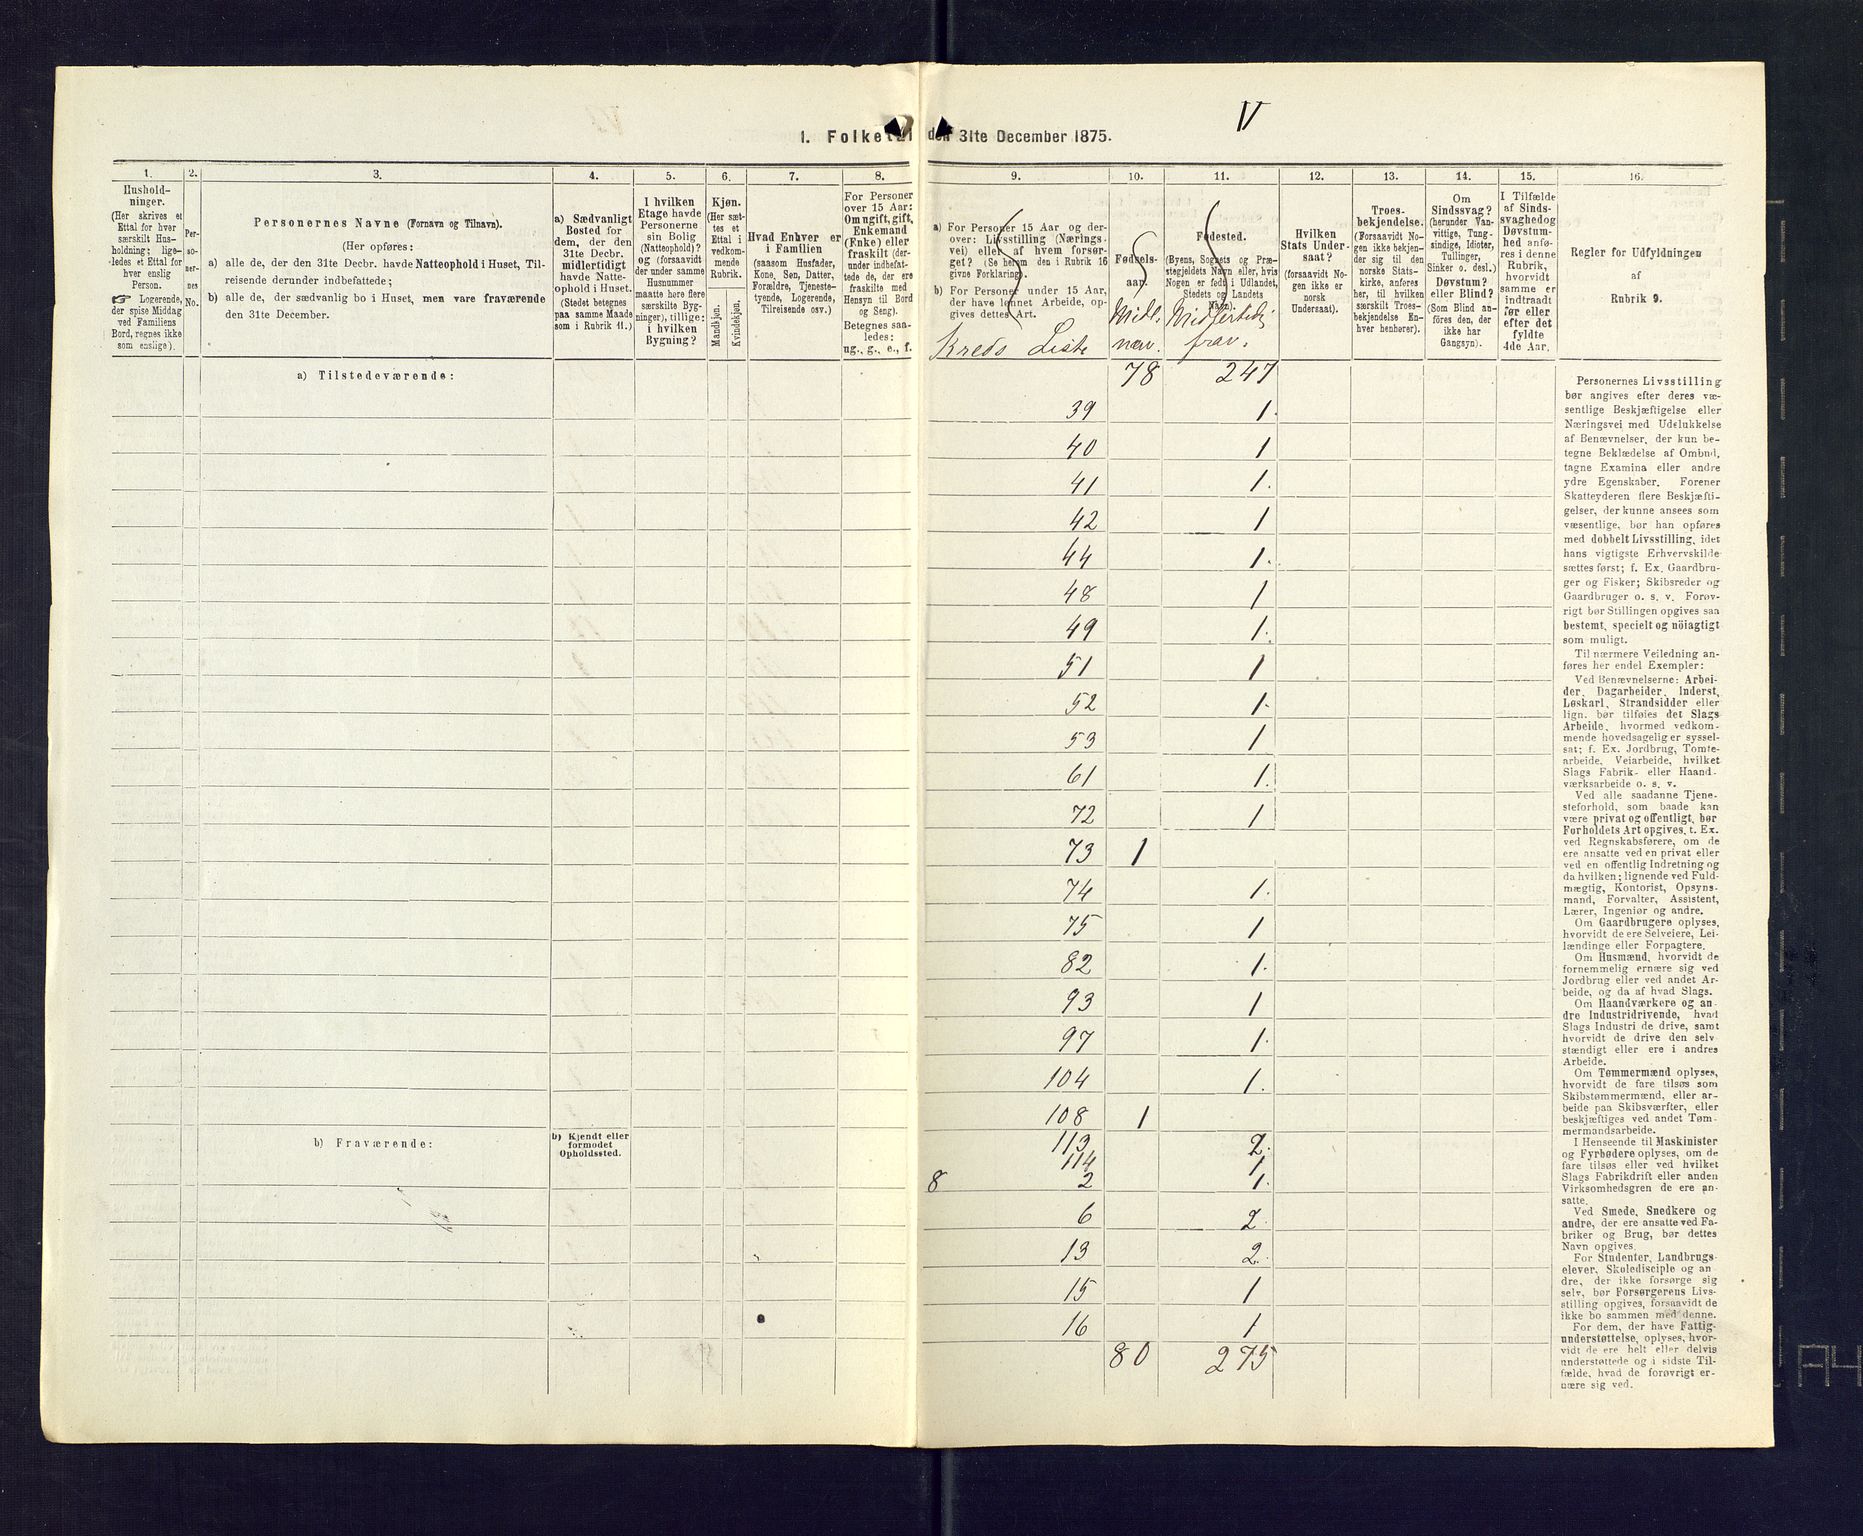 V
1. Folketal den 31te December 1875.
1.
Hushold-
ninger.
(Her skrives et
Ettal for hver
særskilt Hus-
holdning; lige-
ledes et Ettal for
hver enslig
Person.
☞ Logerende,
der spise Middag
ved Familiens
Bord, regnes ikke
som enslige).
2.
Per-
so-
ner-
nes
No.
3.
Personernes Navne (Fornavn og Tilnavn).
(Her opføres:
a) alle de, der den 31te Decbr. havde Natteophold i Huset, Til-
reisende derunder indbefattede;
b) alle de, der sædvanlig bo i Huset, men vare fraværende
den 31te December.
4.
a) Sædvanligt
Bosted for
dem, der den
31te Decbr.
midlertidigt
havde Natte-
ophold i Huset.
(Stedet betegnes
paa samme Maade
som i Rubrik 11.)
5.
I hvilken
Etage havde
Personerne
sin Bolig
(Natteophold)?
og (forsaavidt
der under samme
Husnummer
maatte høre flere
særskilte Byg-
ninger), tillige:
i hvilken
Bygning?
6.
Kjøn.
(Her sæt-
tes et
Ettal i
vedkom-
mende
Rubrik.
Mandkjøn.
Kvindekjøn.
7.
Hvad Enhver er
i Familien
(saasom Husfader,
Kone, Søn, Datter,
Forældre, Tjeneste-
tyende, Logerende,
Tilreisende osv.)
8.
For Personer
over 15 Aar:
Om ugift, gift,
Enkemand
(Enke) eller
fraskilt (der-
under indbefat-
tede de, der ere
fraskilte med
Hensyn til Bord
og Seng).
Betegnes saa-
ledes:
ug., g., e., f.
9.
a) For Personer 15 Aar og der-
over: Livsstilling (Nærings-
vei) eller af hvem forsør-
get? (Se herom den i Rubrik 16
givne Forklaring).
b) For Personer under 15 Aar,
der have lønnet Arbeide, op-
gives dettes Art.
Kreds Liste
10.
Fødsels-
aar.
Midl.
nærv.
11.
Fødested.
(Byens, Sognets og Præ-
stegjeldets Navn eller, hvis
Nogen er født i Udlandet,
Stedets og Landets
Navn).
Midlertidig
frav.
12.
Hvilken
Stats Under-
saat?
(forsaavidt No-
gen ikke er
norsk
Undersaat).
13.
Troes-
bekjendelse.
(Forsaavidt No-
gen ikke bekjen-
der sig til den
norske Stats-
kirke, anføres
her, til hvilken
særskilt Troes-
bekjendelse En-
hver henhører).
14.
Om
Sindssvag?
(herunder Van-
vittige, Tung-
sindige, Idioter,
Tullinger,
Sinker o. desl.)
Døvstum?
eller Blind?
(Som Blind an-
føres den, der
ikke har
Gangsyn).
15.
I Tilfælde
af Sinds-
svaghed og
Døvstum-
hed anfø-
res i denne
Rubrik,
hvorvidt
samme er
indtraadt
før eller
efter det
fyldte
4de Aar.
16.
Regler for Udfyldningen
af
Rubrik 9.
a) Tilstedeværende:
78 247
39 1.
40 1
41 1.
42 1
44 1.
48 1
49 1.
51 1
52 1.
53 1
61 1.
72 1
73 1
74 1.
75 1
82 1.
93 1
97 1.
104 1.
108 1
b) Fraværende:
b) Kjendt eller
formodet
Opholdssted.
113 2.
114 1
8 2 1.
6 2
13 2.
15 1
16 1
80 275
Personernes Livsstilling
bør angives efter deres væ-
sentlige Beskjæftigelse eller
Næringsvei med Udelukkelse
af Benævnelser, der kun be-
tegne Beklædelse af Ombud,
tagne Examina eller andre
ydre Egenskaber. Forener
Skatteyderen flere Beskjæfti-
gelser, der kunne ansees som
væsentlige, bør han opføres
med dobbelt Livsstilling, idet
hans vigtigste Erhvervskilde
sættes først; f. Ex. Gaardbru-
ger og Fisker; Skibsreder og
Gaardbruger o. s. v. Forøv-
rigt bør Stillingen opgives saa
bestemt, specielt og nöiagtigt
som muligt.
Til nærmere Veiledning an-
føres her endel Exempler:
Ved Benævnelserne: Arbei-
der, Dagarbeider, Inderst,
Løskarl, Strandsidder eller
lign. bør tilføies det Slags
Arbeide, hvormed vedkom-
mende hovedsagelig er syssel-
sat; f. Ex. Jordbrug, Tomte-
arbeide, Veiarbeide, hvilket
Slags Fabrik- eller Haand-
værksarbeide o. s. v.
Ved alle saadanne Tjene-
steforhold, som baade kan
være privat og offentligt, bør
Forholdets Art opgives, t. Ex.
ved Regnskabsførere, om de
ere ansatte ved en privat eller
ved en offentlig Indretning og
da hvilken; lignende ved Fuld-
mægtig, Kontorist, Opsyns-
mand, Forvalter, Assistent,
Lærer, Ingeniør og andre.
Om Gaardbrugere oplyses,
hvorvidt de ere Selveiere, Lei-
lændinge eller Forpagtere.
Om Husmænd, hvorvidt de
fornemmelig ernære sig ved
Jordbrug eller ved andet Ar-
beide, og da af hvad Slags.
Om Haandværkere og an-
dre Industridrivende, hvad
Slags Industri de drive, samt
hvorvidt de drive den selv-
stændigt eller ere i andres
Arbeide.
Om Tømmermænd oplyses,
hvorvidt de fare tilsøs som
Skibstømmermænd, eller ar-
beide paa Skibsværfter, eller
beskjæftiges ved andet Tøm-
mermandsarbeide.
I Henseende til Maskinister
og Fyrbødere oplyses, om de
fare tilsøs eller ved hvilket
Slags Fabrikdrift eller anden
Virksomhedsgren de ere an-
satte.
Ved Smede, Snedkere og
andre, der ere ansatte ved Fa-
briker og Brug, bør dettes
Navn opgives.
For Studenter, Landbrugs-
elever, Skoledisciple og an-
dre, der ikke forsørge sig
selv, bør Forsørgerens Livs-
stilling opgives, forsaavidt de
ikke bo sammen med denne.
For dem, der have Fattig-
understøttelse, oplyses, hvor-
vidt de ere helt eller delvis
understøttede og i sidste Til-
fælde, hvad de forøvrigt er-
nære sig ved.